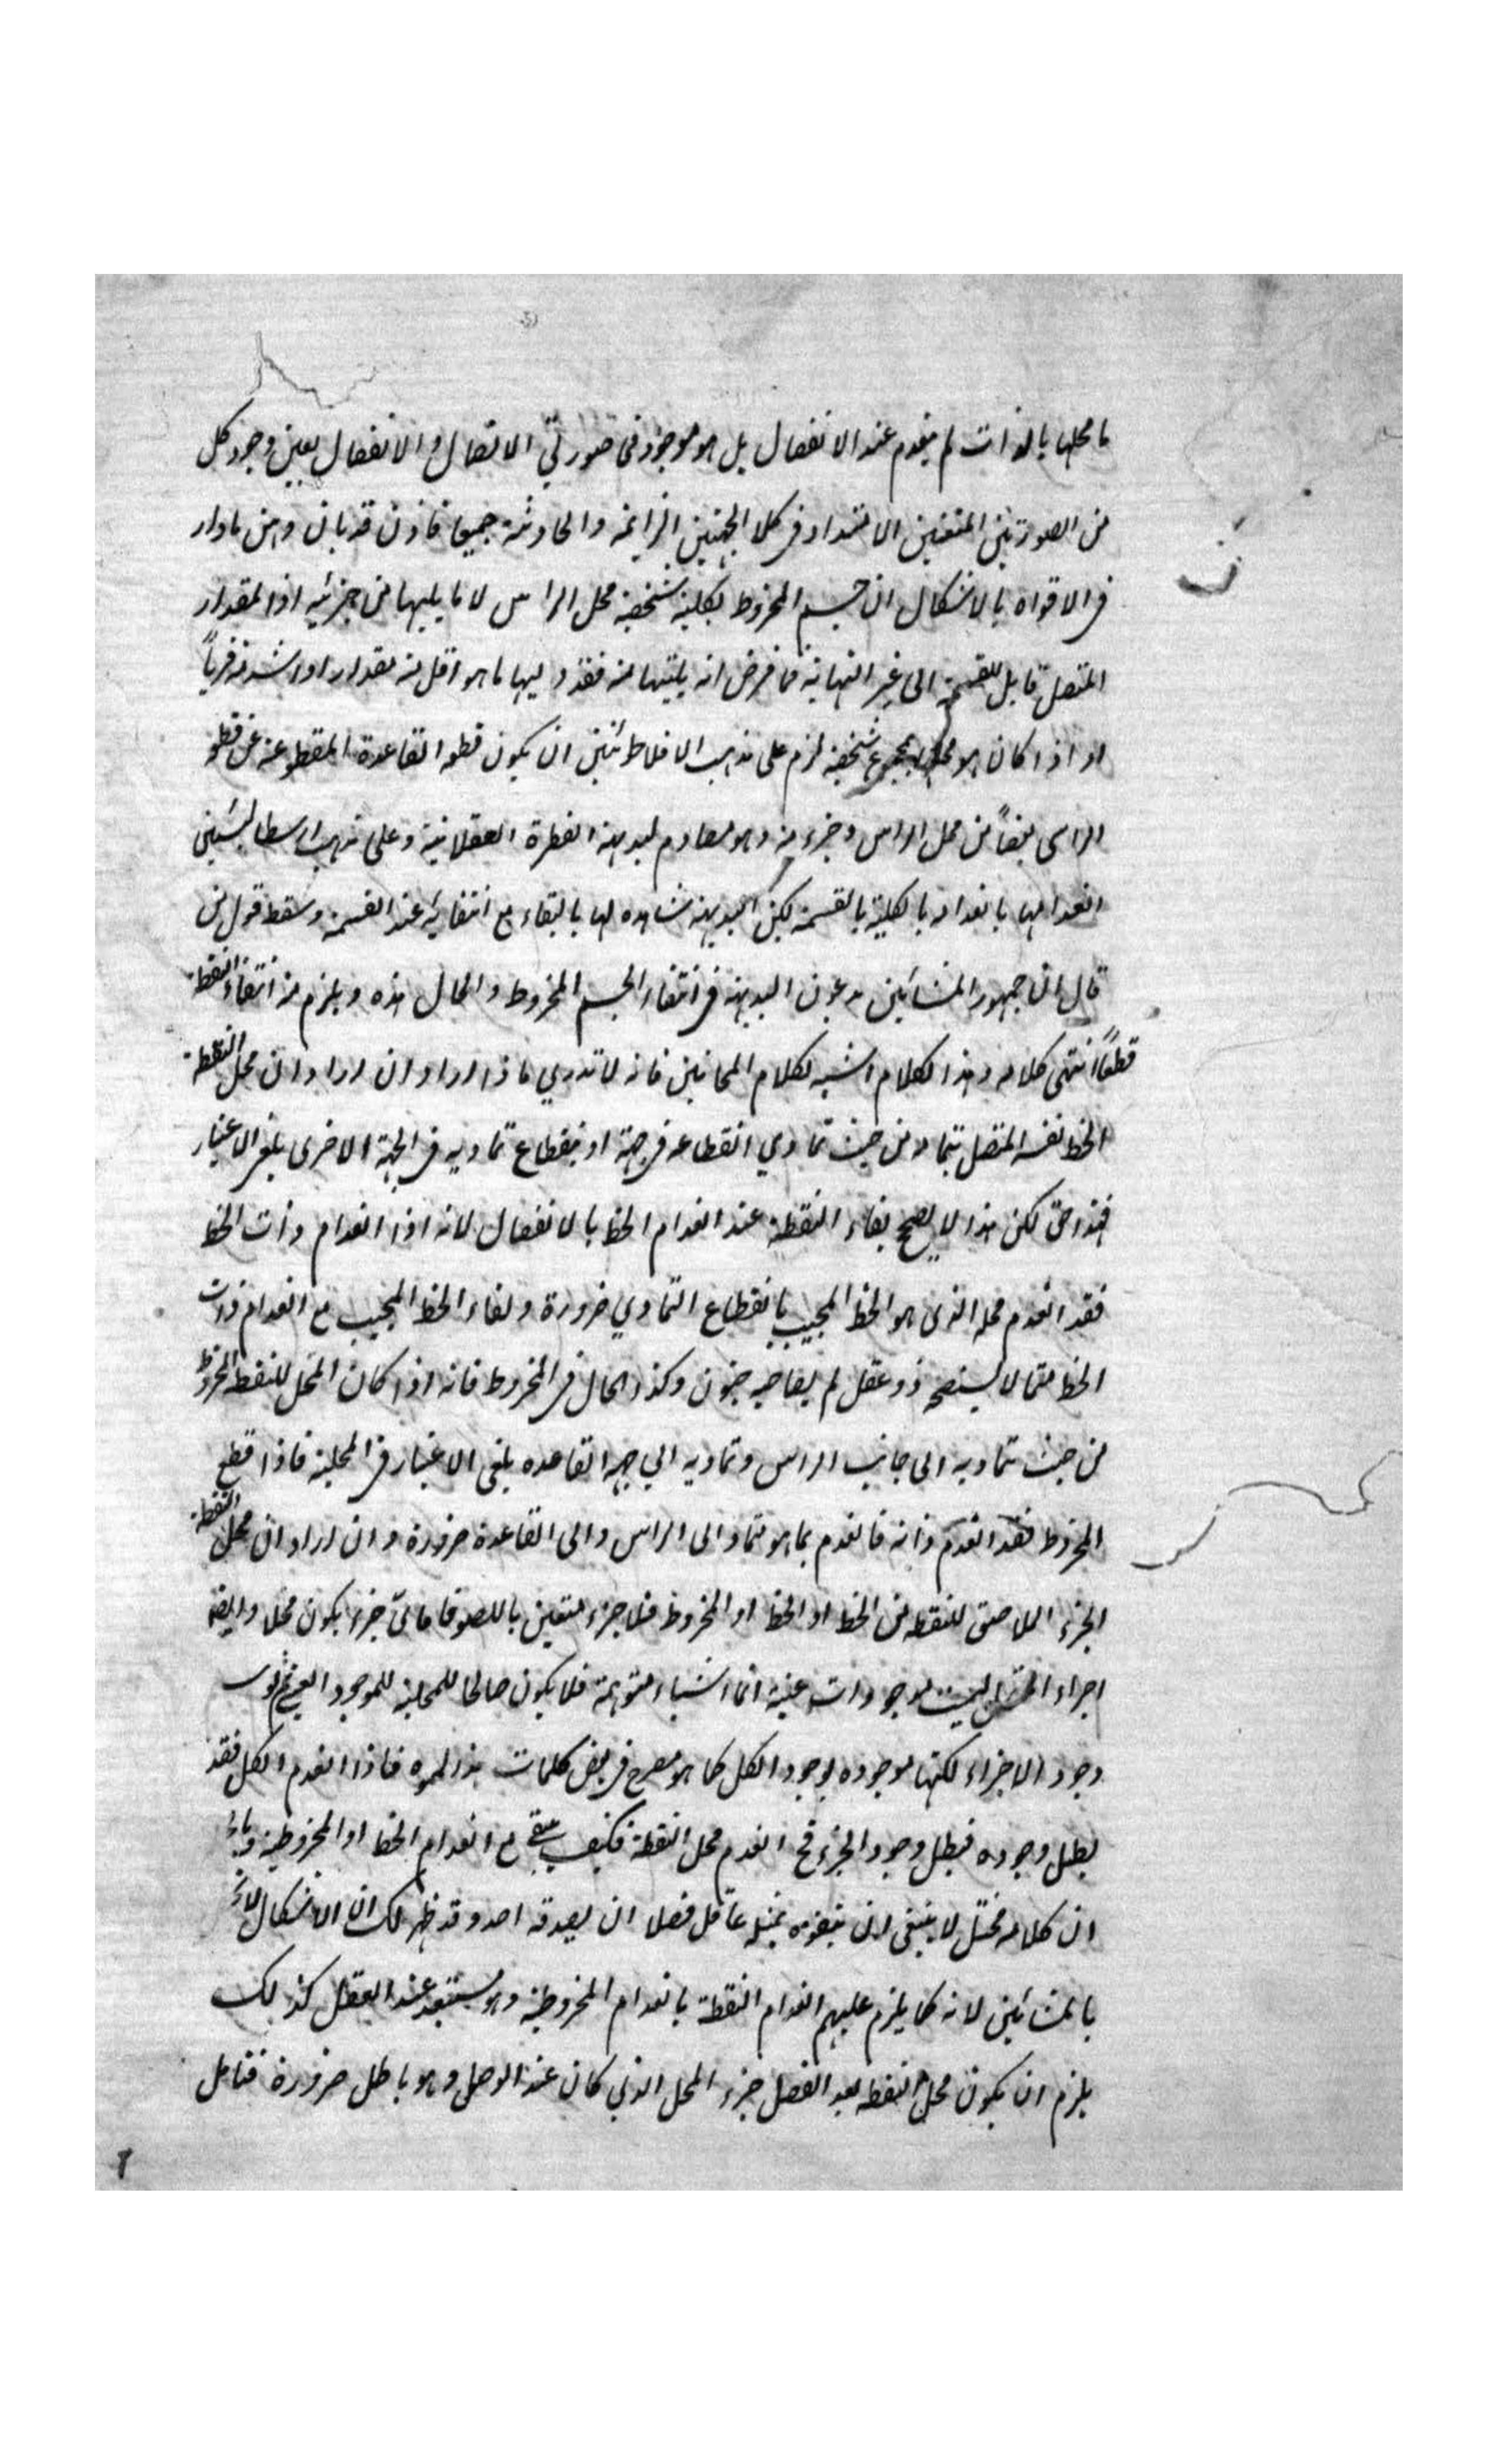 ما محلها بالذات لم ينعدم عند الانفصال بل هو موجود في صورتي الاتصال والانفصال بعين وجود كل
من الصورتين المتعنين الامتداد في كلا الجهتين الزائمة والحادثة جميعا فاذن قد بان وهن ما دار
في الافواه بالاشكال ان جسم المخروط بكلية شخصية محل الراس لا ما يليها من جزئيه اذ المقدار
المتصل قابل للقسمة الى غير النهاية فما فرض انه يليها منه فقد وليها ما هو اقل منه مقدارا واشد منه قربا
او اذا كان هو محلها بمجموع شخصية لزم على مذهب الافلاطنين ان يكون قطو القاعدة المقطوعة عن قطو
الراس بعضا من محل الراس وجزء منه وهو مصادم لبديهة الفطرة العقلانية وعلى مذهب ارسطاليسين
انعدامها بانعدامه بالكلية بالقسمة لكن البديهة شاهده لها بالبقاء مع انتفائه عند القسمة وسقط قول من
قال ان جمهور المشائين يدعون البديهة في انتفاء الجسم المخروط والحال هذه ويلزم منه انتفاء النقطة
قطعا انتهى كلامه وهذا الكلام اشبه لكلام المجانين فانه لا تدري ما ذا اراد وان اراد ان محل النقطة
الخط نفسه المتصل بتماد من حيث تمادي انقطاعه في جهة او بنقطاع تماديه في الجهة الاخرى يلغي الاعتبار
فهذا حق لكن هذا لا يصح بقاء النقطة عند انعدام الخط بالانفصال لانه اذا انعدام ذات الخط
فقد انعدم محله الذي هو الخط المجيب بانقطاع التمادي ضرورة وبقاء الخط المجيب مع انعدام ذات
الخط مما لا يستصحه ذو عقل لم يصاحبه جنون وكذا الحال في المخروط فانه اذا كان المحل للنقطة المخروط
من حيث تماديه الى جانب الراس وتماديه الي جهة القاعده يلغى الاعتبار في المحلية فاذا قطع
المخروط فقد انعدم ذاته فانعدم بما هو تماد الى الراس والى القاعدة ضرورة وان اراد ان محل النقطة
الجزء الملاصق للنقطه من الخط او الخط او المخروط فلا جزء متعين باللصوق فاي جزء يكون محلا وايضا
اجراء المتصل ليست موجودات عينية انما اشياء متوهمة فلا يكون صالحا للمحلية للموجود العيني ثم لوسـ
وجود الاجزاء لكنها موجوده بوجود الكل كما هو مصرح في بعض كلمات هذا المموه فاذا انعدم الكل فقد
بطل وجوده فبطل وجود الجزء فح انعدم محل النقطة فكيف يبقى مع انعدام الخط او المخروطية
ان كلامه مختل لا ينبغي لان يتفوه بمثله عاقل فضلا ان يصدقه احد وقد ظهر لك ان الاشكال
بالمشائين لانه كما يلزم عليهم انعدام النقطة بانعدام المخروطية وهو مستبعد عند العقل كذلك
يلزم ان يكون محل النقطه بعد الفصل جزء المحل الذي كان عند الوصل وهو باطل ضرورة فتامل